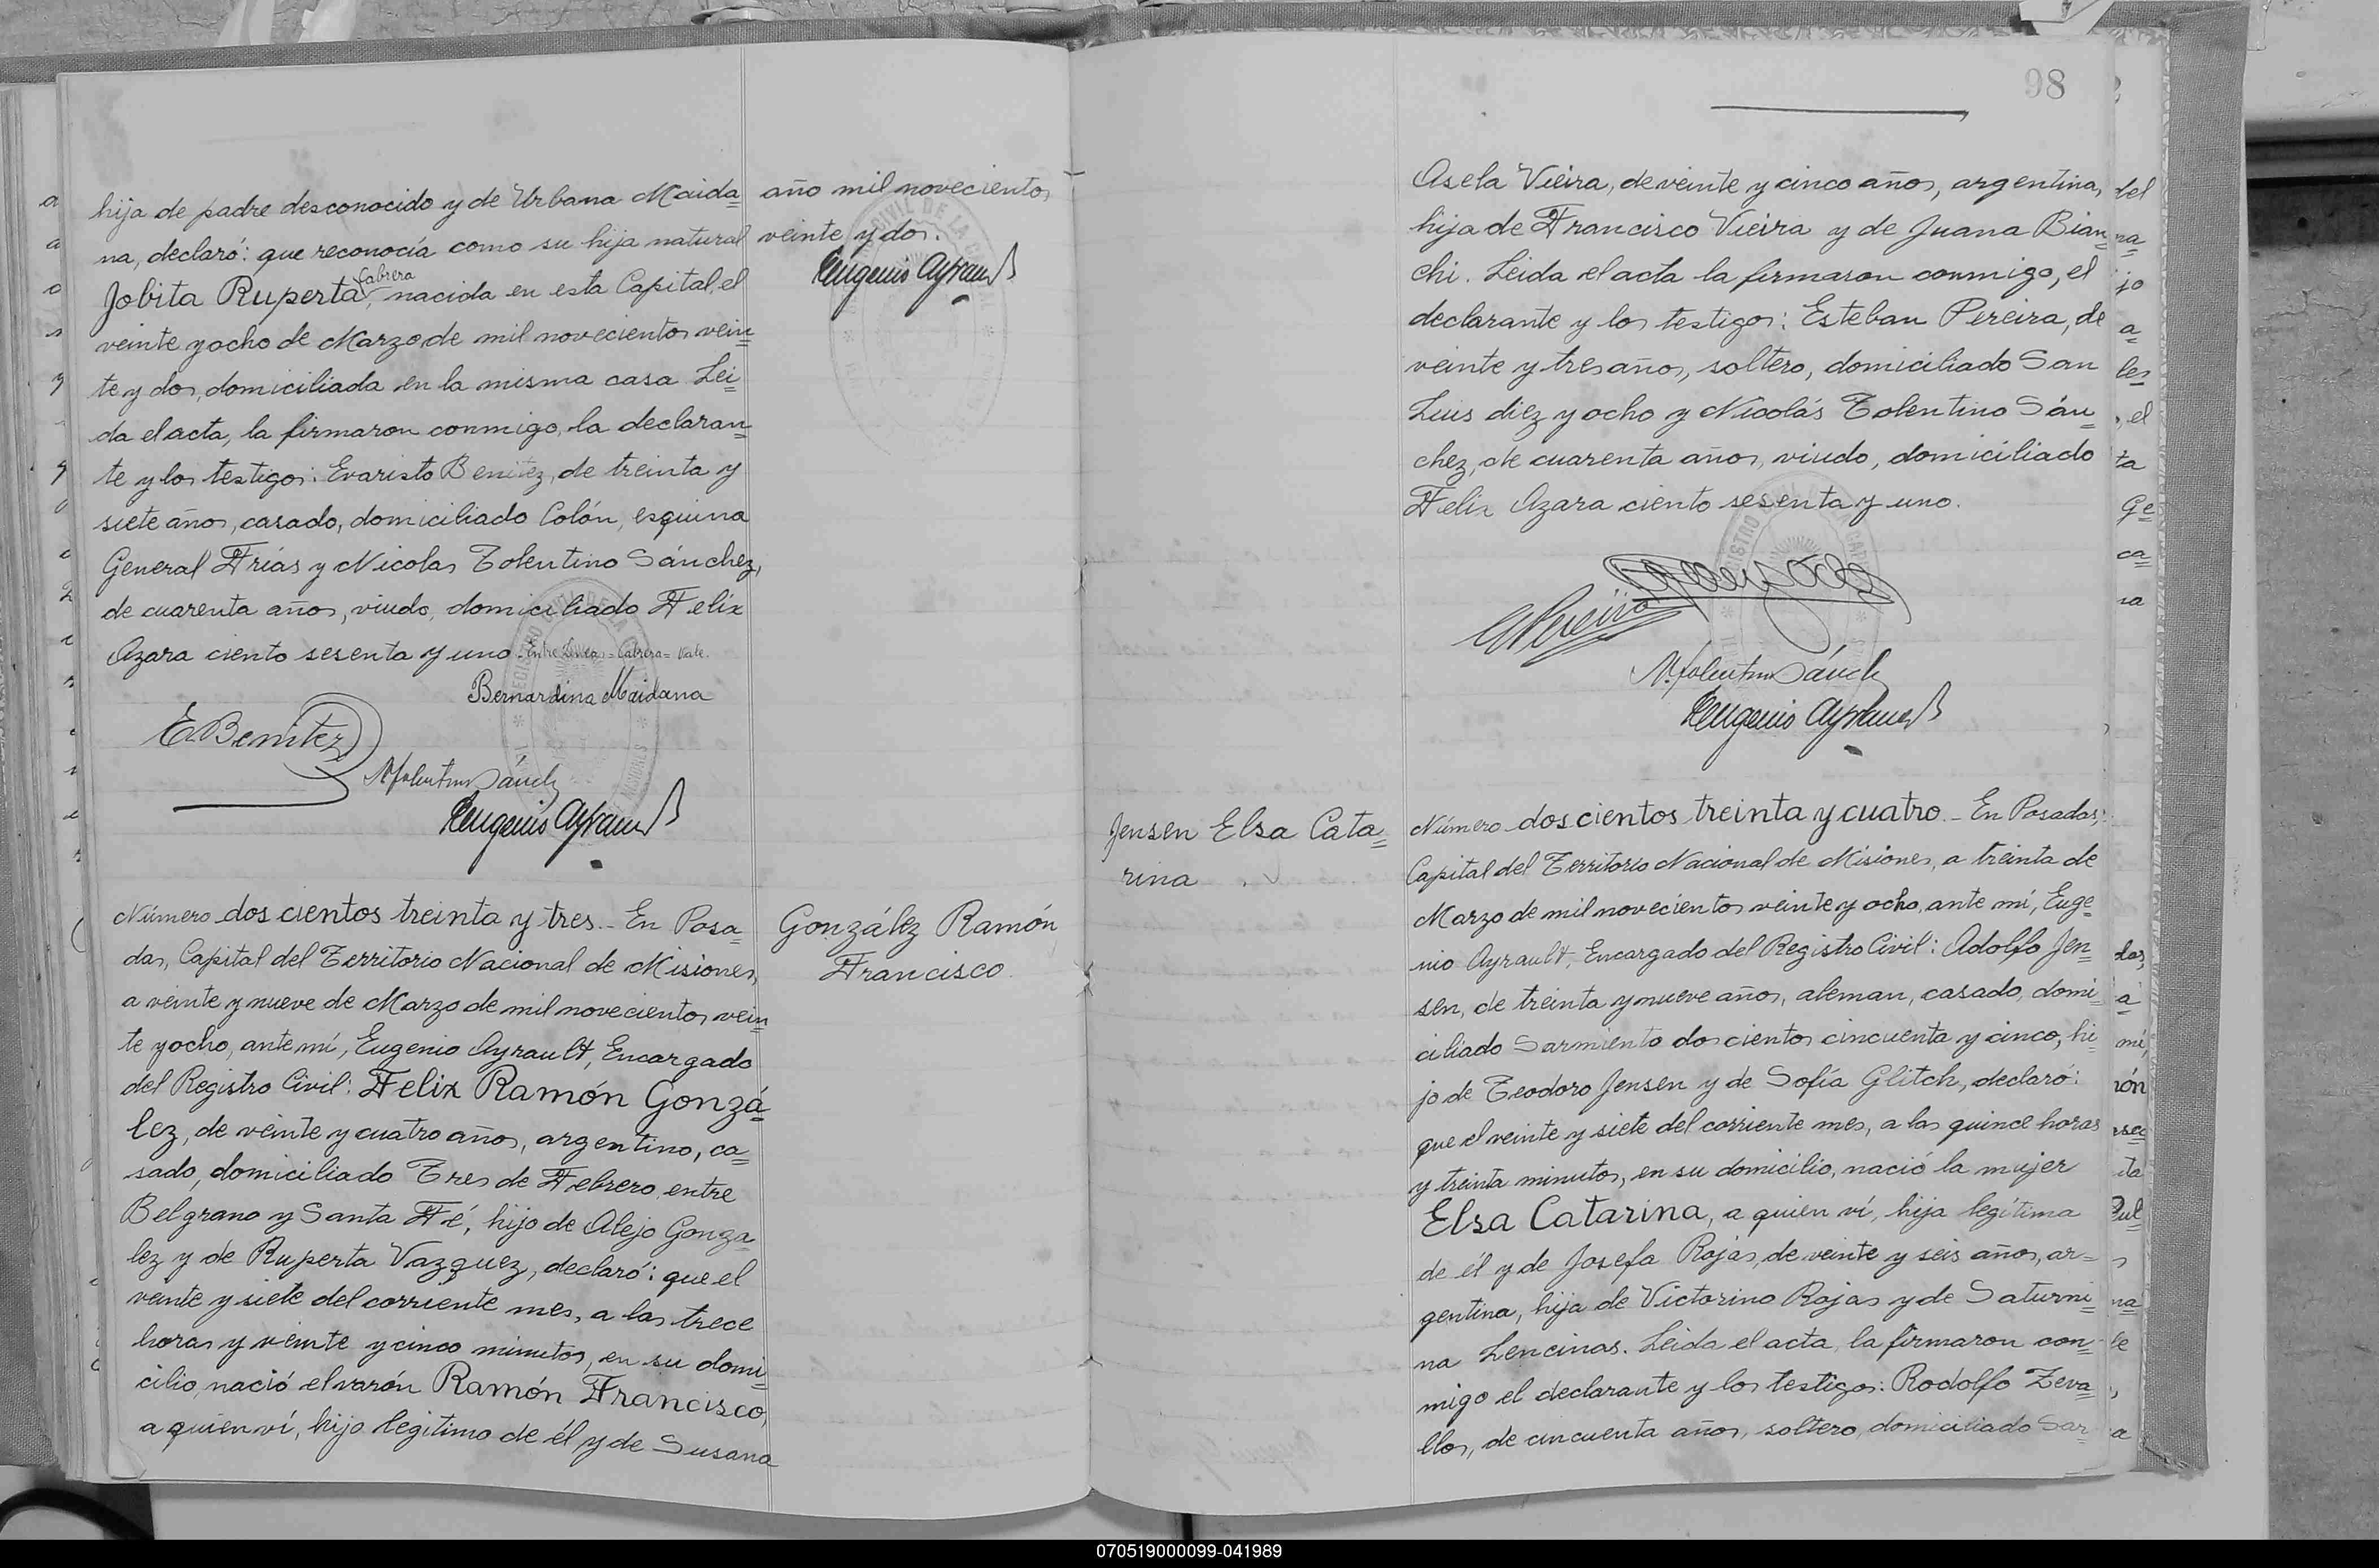 hija de padre desconocido y de Urbana Maida=
na, declaró: que reconocía como su hija natural
Cabrera
Jobita Ruperta, nacida en esta Capital, el
veinte y ocho de Marzo de mil novecientos vein=
te y dos, domiciliada en la misma casa. Lei=
da el acta, la firmaron conmigo, la declaran=
te y los testigos: Evaristo Benitez, de treinta y
siete años, casado, domiciliado Colón, esquina
General Frías y Nicolas Tolentino Sánchez,
de cuarenta años, viudo, domiciliado Felix
Azara ciento sesenta y uno. Entre líneas = Cabrera = Vale.
Bernardina Maidana
E Benitez
N. Tolentino Sánch
Eugenio Ayrault
año mil novecientos
veinte y dos.
Eugenio Ayrault
Número dos cientos treinta y tres.- En Posa=
das, Capital del Territorio Nacional de Misiones,
a veinte y nueve de Marzo de mil novecientos vein=
te y ocho, ante mí, Eugenio Ayrault, Encargado
del Registro Civil: Felix Ramón Gonzá=
lez, de veinte y cuatro años, argentino, ca=
sado, domiciliado Tres de Febrero, entre
Belgrano y Santa Fé, hijo de Alejo Gonza=
lez y de Ruperta Vazquez, declaró: que el
veinte y siete del corriente mes, a las trece
horas y veinte y cinco minutos, en su domi=
cilio, nació el varón Ramón Francisco,
a quien ví, hijo legitimo de él y de Susana
González Ramón
Francisco.
98
Asela Vieira, de veinte y cinco años, argentina,
hija de Francisco Vieira y de Juana Bian=
chi. Leida el acta la firmaron conmigo, el
declarante y los testigos: Esteban Pereira, de
veinte y tres años, soltero, domiciliado San
Luis diez y ocho y Nicolás Tolentino Sán=
chez, de cuarenta años, viudo, domiciliado
Felix Azara ciento sesenta y uno.
E Pereira
N. Tolentino Sánch
Eugenio Ayrault
Jensen Elsa Cata=
rina
Número dos cientos treinta y cuatro.- En Posadas,
Capital del Territorio Nacional de Misiones, a treinta de
Marzo de mil novecientos veinte y ocho, ante mí, Euge=
nio Ayrault, Encargado del Registro Civil: Adolfo Jen=
sen, de treinta y nueve años, aleman, casado, domi=
ciliado Sarmiento dos cientos cincuenta y cinco, hi=
jo de Teodoro Jensen y de Sofía Glitch, declaró:
que el veinte y siete del corriente mes, a las quince horas
y treinta minutos, en su domicilio, nació la mujer
Elsa Catarina, a quien ví, hija legítima
de él y de Josefa Rojas, de veinte y seis años, ar=
gentina, hija de Victorino Rojas y de Saturni=
na Lencinas. Leida el acta, la firmaron con=
migo el declarante y los testigos: Rodolfo Zeva=
llos, de cincuenta años, soltero, domiciliado Sar=
070519000099-041989